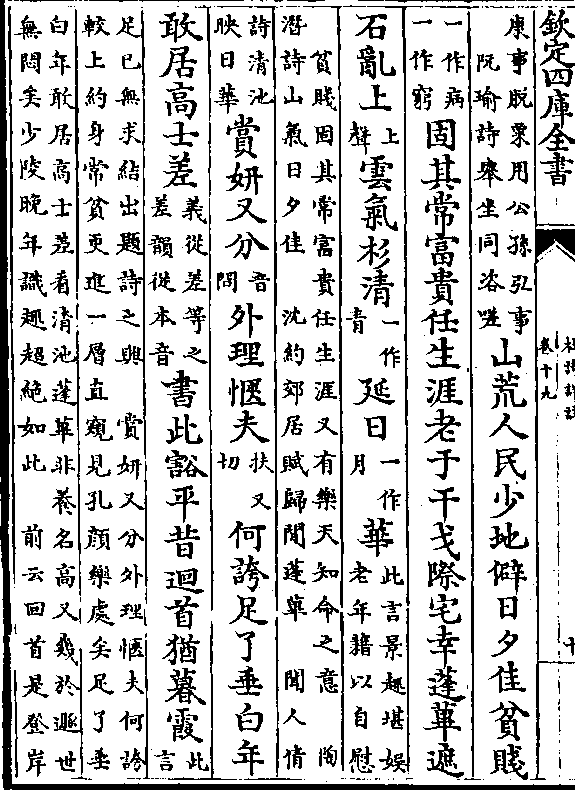 欽定四庫全書
杜詩詳註
卷十九
康事脱粟用公孫弘事
阮瑜詩舉坐同咨嗟
山荒人民少地僻日夕佳貧賤
一作病
一作窮
固其常富貴任生涯老于干戈際宅幸蓬蓽遮
石亂上
上
聲
雲氣杉清
一作
青
延日
一作
月
華
此言景趣堪娛
老年籍以自慰
貧賤固其常富貴任生涯又有樂天知命之意　陶
潛詩山氣日夕佳　沈約郊居賦歸閒蓬蓽　聞人倩
詩清池
映日華
賞妍又分
音
問
外理愜夫
扶又
切
何誇足了垂白年
敢居高士差
義從差等之
差韻從本音
書此豁平昔迴首猶暮霞
此
言
足已無求結出題詩之興　賞妍又分外理愜夫何誇
較上約身常貧更進一層直窺見孔顔樂處矣足了垂
白年敢居高士差看清池蓬蓽非養名高又幾於遯世
無悶矣少陵晚年識趣超絶如此　前云回首是登岸